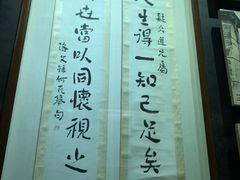 疑仌道兄屬
人生得一知己足矣
世當以同懷視之
洛文錄何瓦琴句